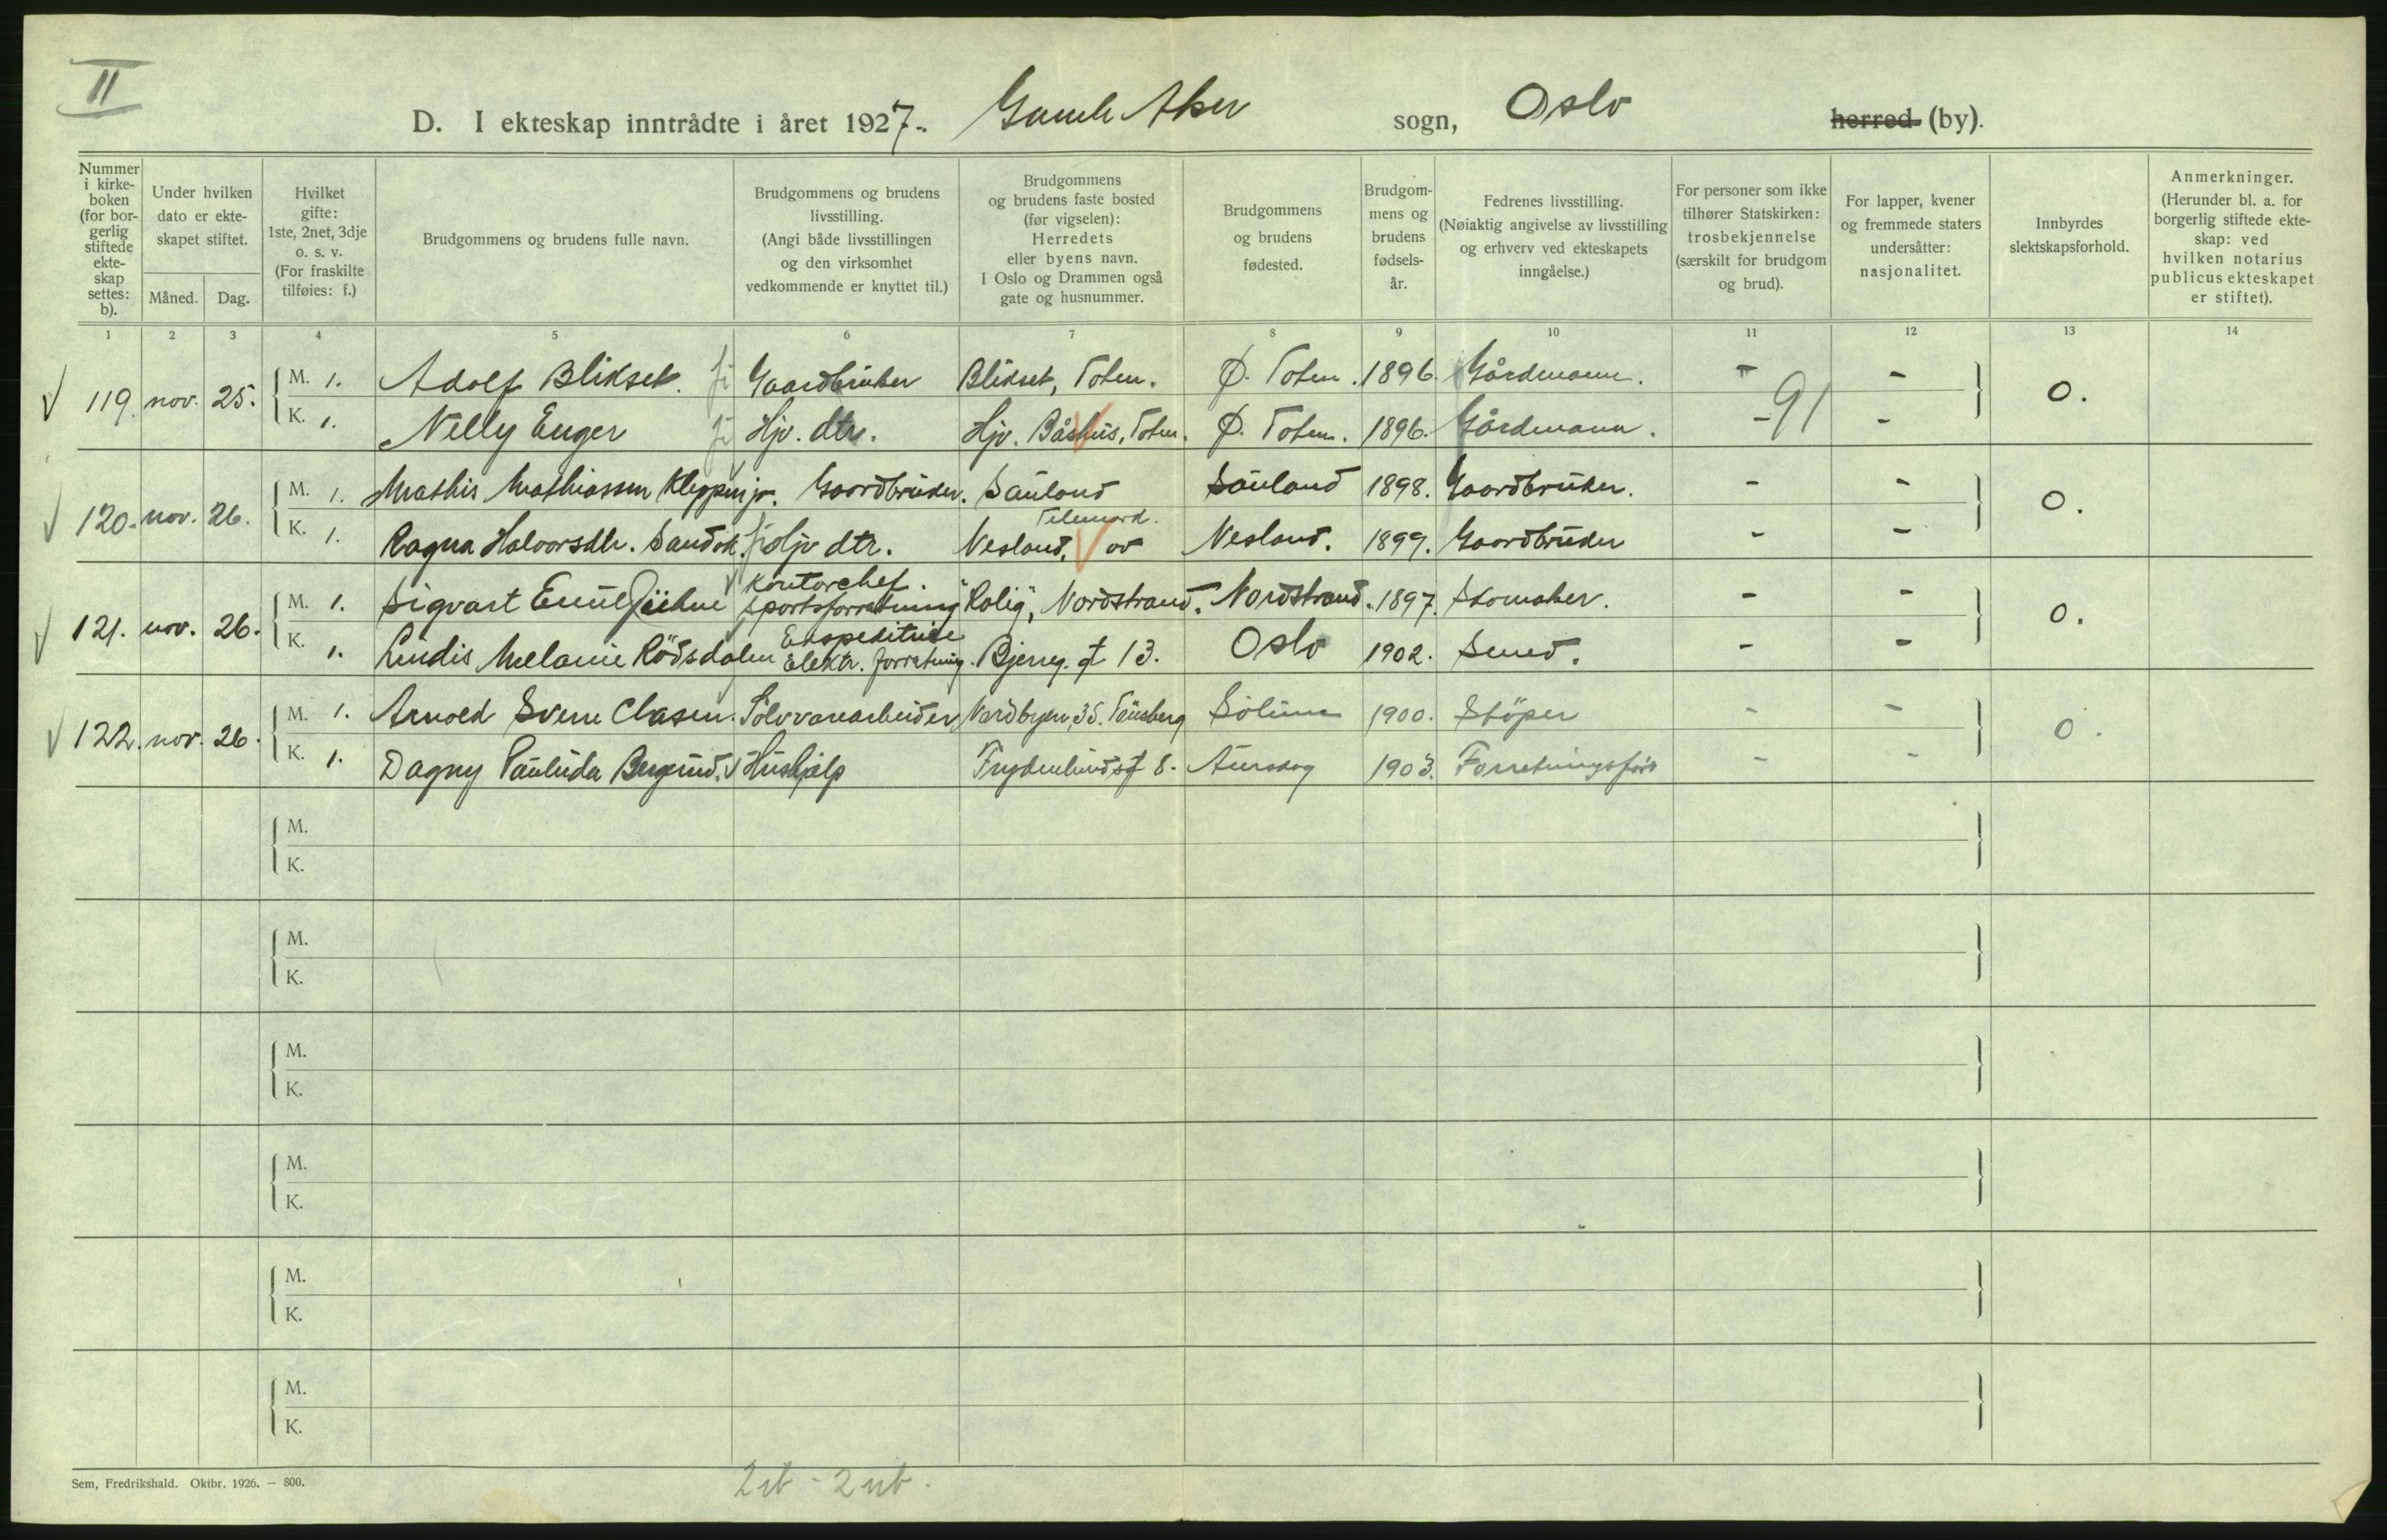 II
D. I ekteskap inntrådte i året 1927. Gamle Aker sogn, Oslo herred (by).
Nummer i kirkeboken (for borgerlig stiftede ekteskap settes: b).
Under hvilken dato er ekteskapet stiftet.
Måned. Dag.
Hvilket gifte: 1ste, 2net, 3dje o. s. v. (For fraskilte tilføies: f.)
Brudgommens og brudens fulle navn.
Brudgommens og brudens livsstilling. (Angi både livsstillingen og den virksomhet vedkommende er knyttet til.)
Brudgommens og brudens faste bosted (før vigselen): Herredets eller byens navn. I Oslo og Drammen også gate og husnummer.
Brudgommens og brudens fødested.
Brudgommens og brudens fødselsår.
Fedrenes livsstilling. (Nøiaktig angivelse av livsstilling og erhverv ved ekteskapets inngåelse.)
For personer som ikke tilhører Statskirken: trosbekjennelse (særskilt for brudgom og brud).
For lapper, kvener og fremmede staters undersåtter: nasjonalitet.
Innbyrdes slektskapsforhold.
Anmerkninger. (Herunder bl. a. for borgerlig stiftede ekteskap: ved hvilken notarius publicus ekteskapet er stiftet).
1 2 3 4 5 6 7 8 9 10 11 12 13 14
119. nov. 25. M. 1. Adolf Blikset. Gaardbruker Blikset, Toten. Ø. Toten. 1896. Gårdmann. - - 0.
K. 1. Nelly Enger Hjv. dtr. Hjv. Båshus, Toten. Ø. Toten. 1896. Gårdmann. - 91 -
120. nov. 26. M. 1. Mathis Mathiassen Kleppen jr. Gaardbruker. Sauland Sauland 1898. Gaardbruker. - - 0.
K. 1. Ragna Halvorsdtr. Sandok. Hjv dtr. Nesland, Telemark. Nesland. 1899. Gaardbruker - -
121. nov. 26. M. 1. Sigvart Emil Jühne Kontorchef. sportsforretning "Rolig", Nordstrand. Nordstrand. 1897. Skomaker. - - 0.
K. 1. Lindis Melanie Rödsdalen Ekspeditrise Elektr. forretning. Bjerreg. gt 13. Oslo 1902. Smed. - -
122. nov. 26. M. 1. Arnold Sverre Clasen. Sölvvarearbeider Nordbyen, 35. Tönsberg Solum 1900. Stöper - - 0.
K. 1. Dagny Paulida Bergerud. Hushjælp Frydenlunds gt 8. Aurskog 1903. Forretningsförer - -
M.
K.
M.
K.
M.
K.
M.
K.
M.
K.
M.
K.
Sem, Fredrikshald. Oktbr. 1926. — 800.
2 ib - 2 uib.